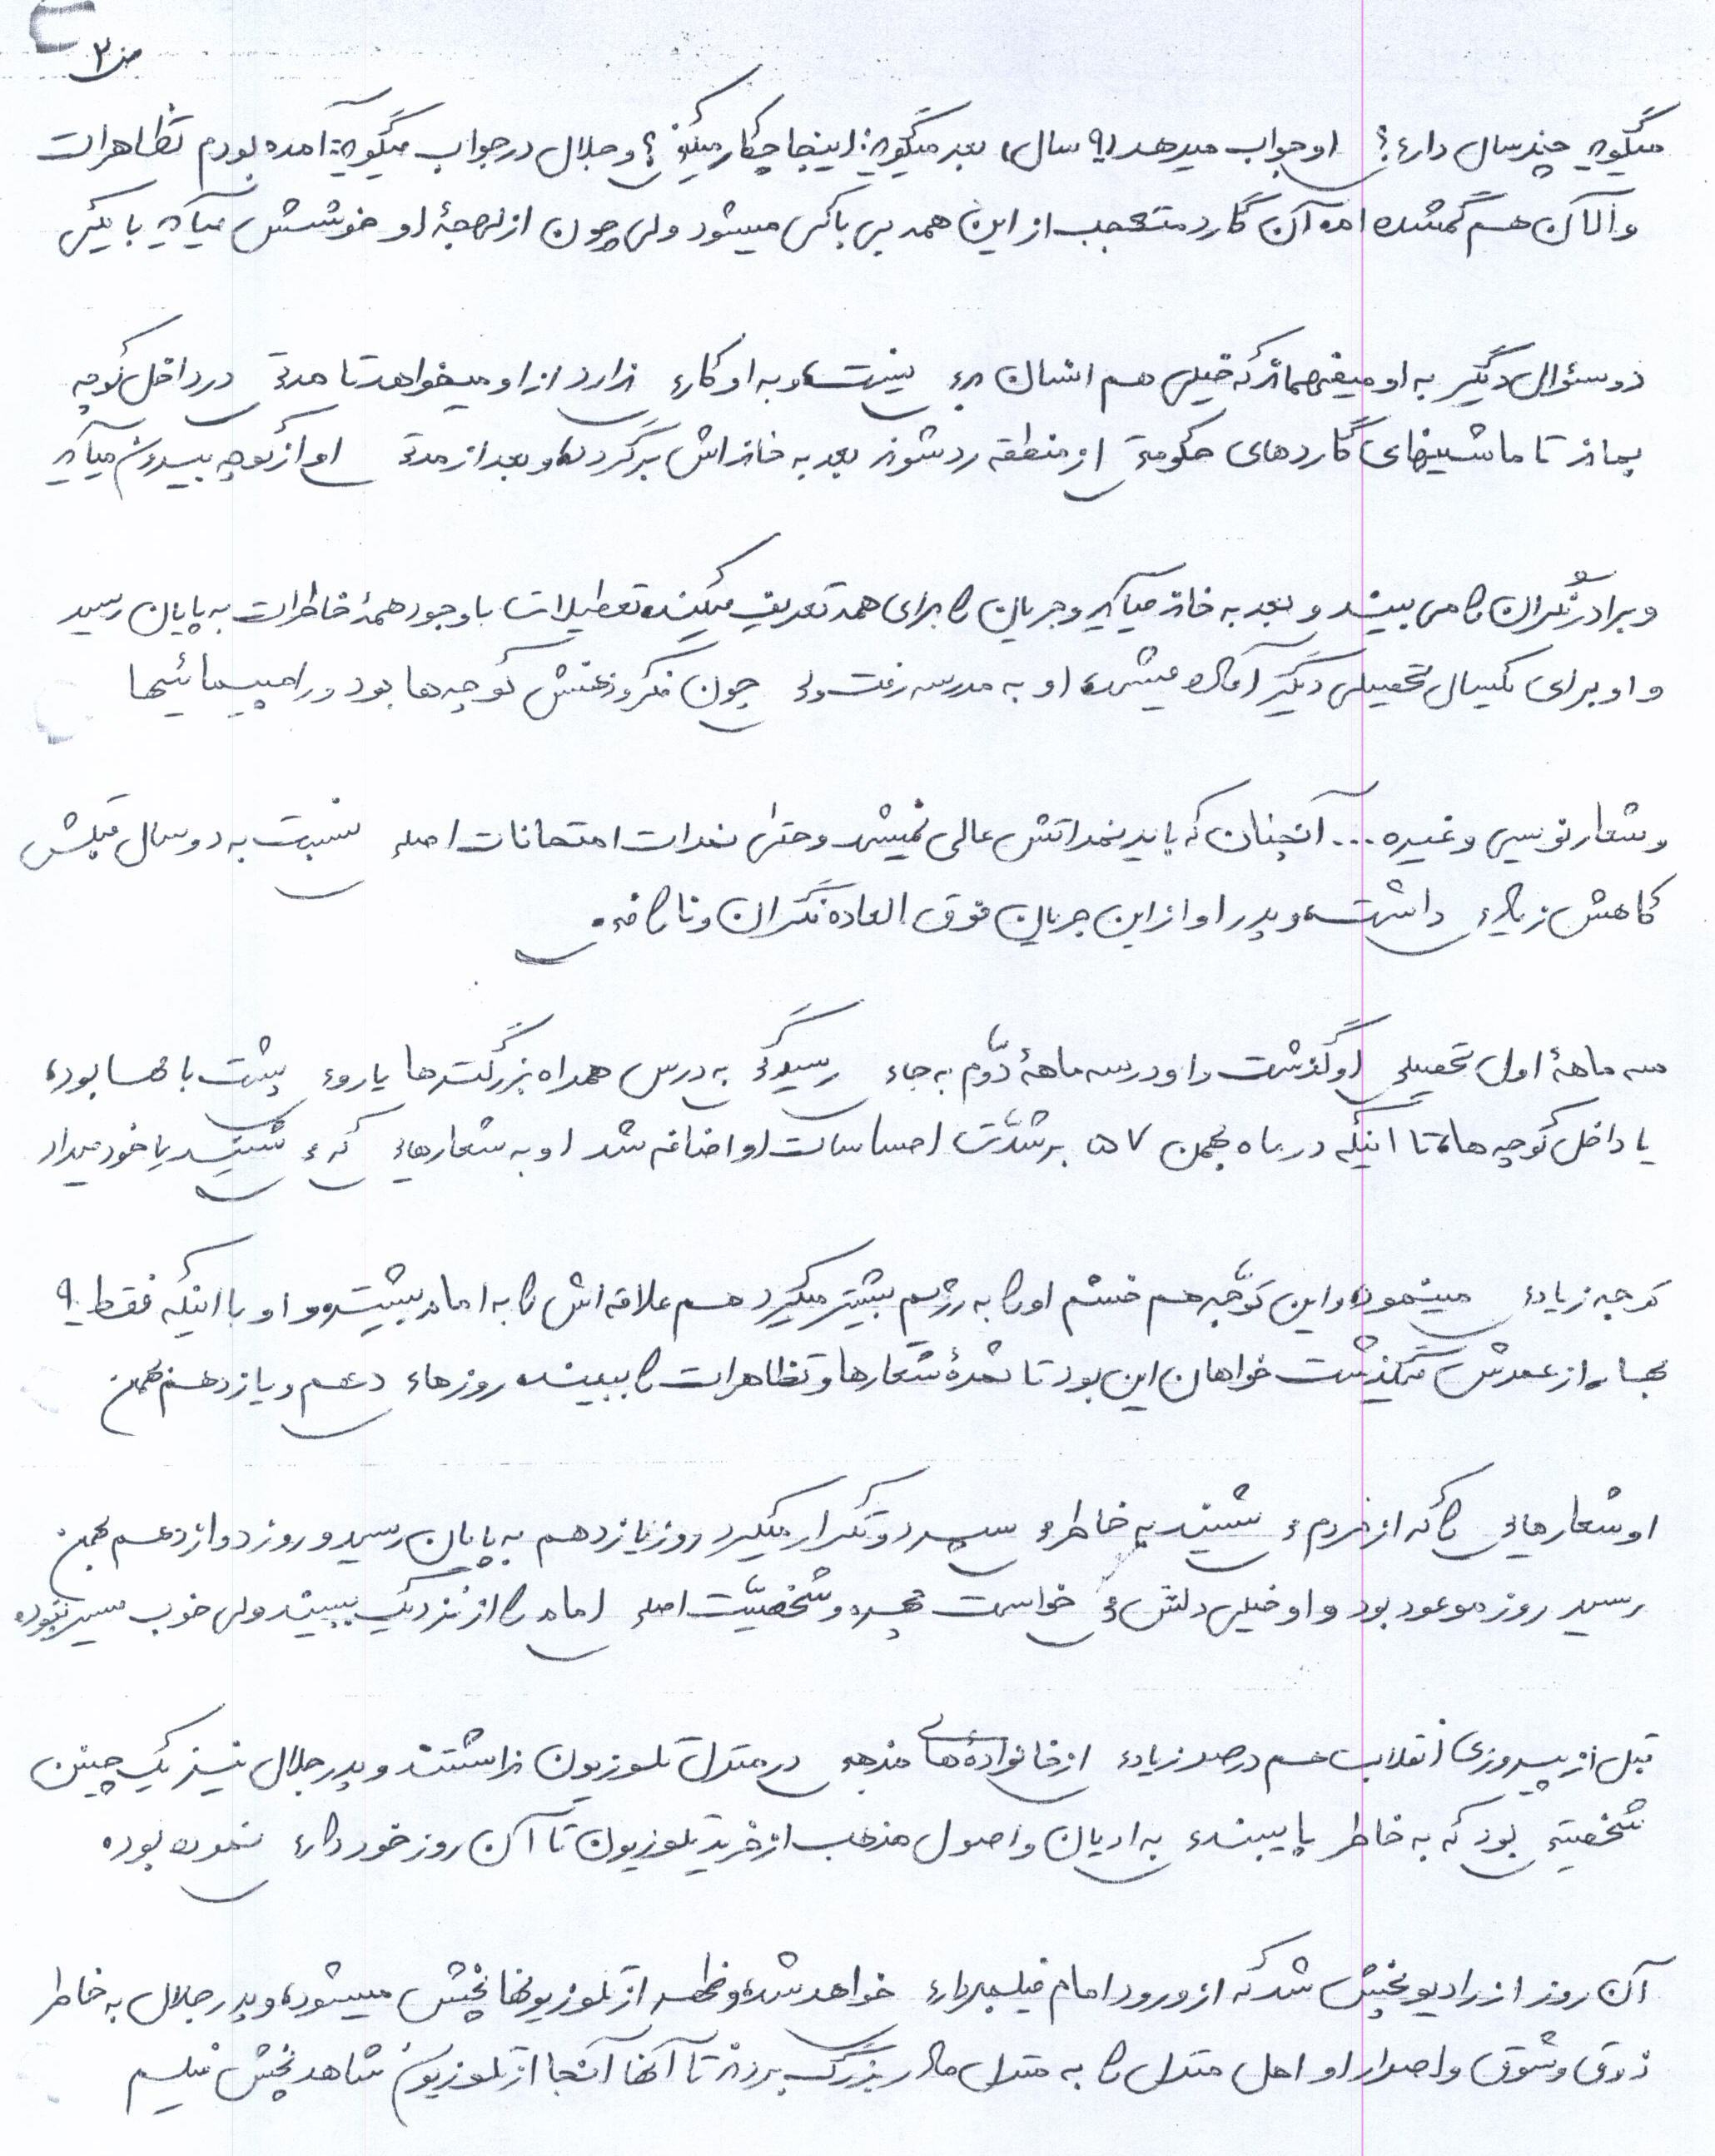 ص ۲
میگوید چند سال داری؟ او جواب میدهد (۹ سال) بعد میگوید: اینجا چکار میکنی؟ و جلال در جواب میگوید: آمده بودم تظاهرات
و الآن هم گمشده ام، آن گارد متعجب از این همه بی باکی میشود ولی چون از لهجۀ او خوشش میآید با یکی
دو سئوال دیگر به او میفهماند که خیلی هم انسان بدی نیست، و به او کاری ندارد از او میخواهد تا مدتی در داخل کوچه
بماند تا ماشینهای گاردهای حکومتی از منطقه رد شوند بعد به خانه اش برگردد، و بعد از مدتی او از کوچه بیرون میآید
و برادر نگران را می بیند و بعد به خانه میآید و جریان را برای همه تعریف میکند، تعطیلات با وجود همۀ خاطرات به پایان رسید
و او برای یکسال تحصیلی دیگر آماده میشد، او به مدرسه رفت ولی چون فکر و ذهنش کوچه ها بود و راهپیمائیها
و شعارنویسی و غیره ... آنچنان که باید نمراتش عالی نمیشد و حتی نمرات امتحانات اصلی نسبت به دو سال قبلش
کاهش زیادی داشت، و پدر او از این جریان فوق العاده نگران و ناراضی.
سه ماهۀ اول تحصیلی او گذشت و او در سه ماهۀ دوّم به جای رسیدگی به درس همراه بزرگترها یا روی پشت بامها بود،
یا داخل کوچه ها، تا اینکه در ماه بهمن ۵۷ بر شدّت احساسات او اضافه شد او به شعارهایی که می شنید یا خود میداد
توجه زیادی مینمود، و این توجّه هم خشم او را به رژیم بیشتر میکرد هم علاقه اش را به امام بیشتر، و او با اینکه فقط ۹
بهار از عمرش میگذشت خواهان این بود تا ثمرۀ شعارها و تظاهرات را ببیند، روزهای دهم و یازدهم بهمن
او شعارهایی را که از مردم می شنید به خاطر می سپرد و تکرار میکرد روز یازدهم به پایان رسید و روز دوازدهم بهمن
رسید روز موعود بود و او خیلی دلش می خواست چهره و شخصیّت اصلی امام را از نزدیک ببیند ولی خوب میسر نبود،
قبل از پیروزی انقلاب هم درصد زیادی از خانواده های مذهبی در منزل تلوزیون نداشتند و پدر جلال نیز یک چنین
شخصیتی بود که به خاطر پایبندی به ادیان و اصول مذهب از خرید تلوزیون تا آن روز خودداری نموده بود،
آن روز از رادیو پخش شد که از ورود امام فیلمبرداری خواهد شد، و ظهر از تلوزیونها پخش میشود، و پدر جلال به خاطر
ذوق و شوق و اصرار او اهل منزل را به منزل مادر بزرگ بردند تا آنها آنجا از تلوزیون شاهد پخش فیلم